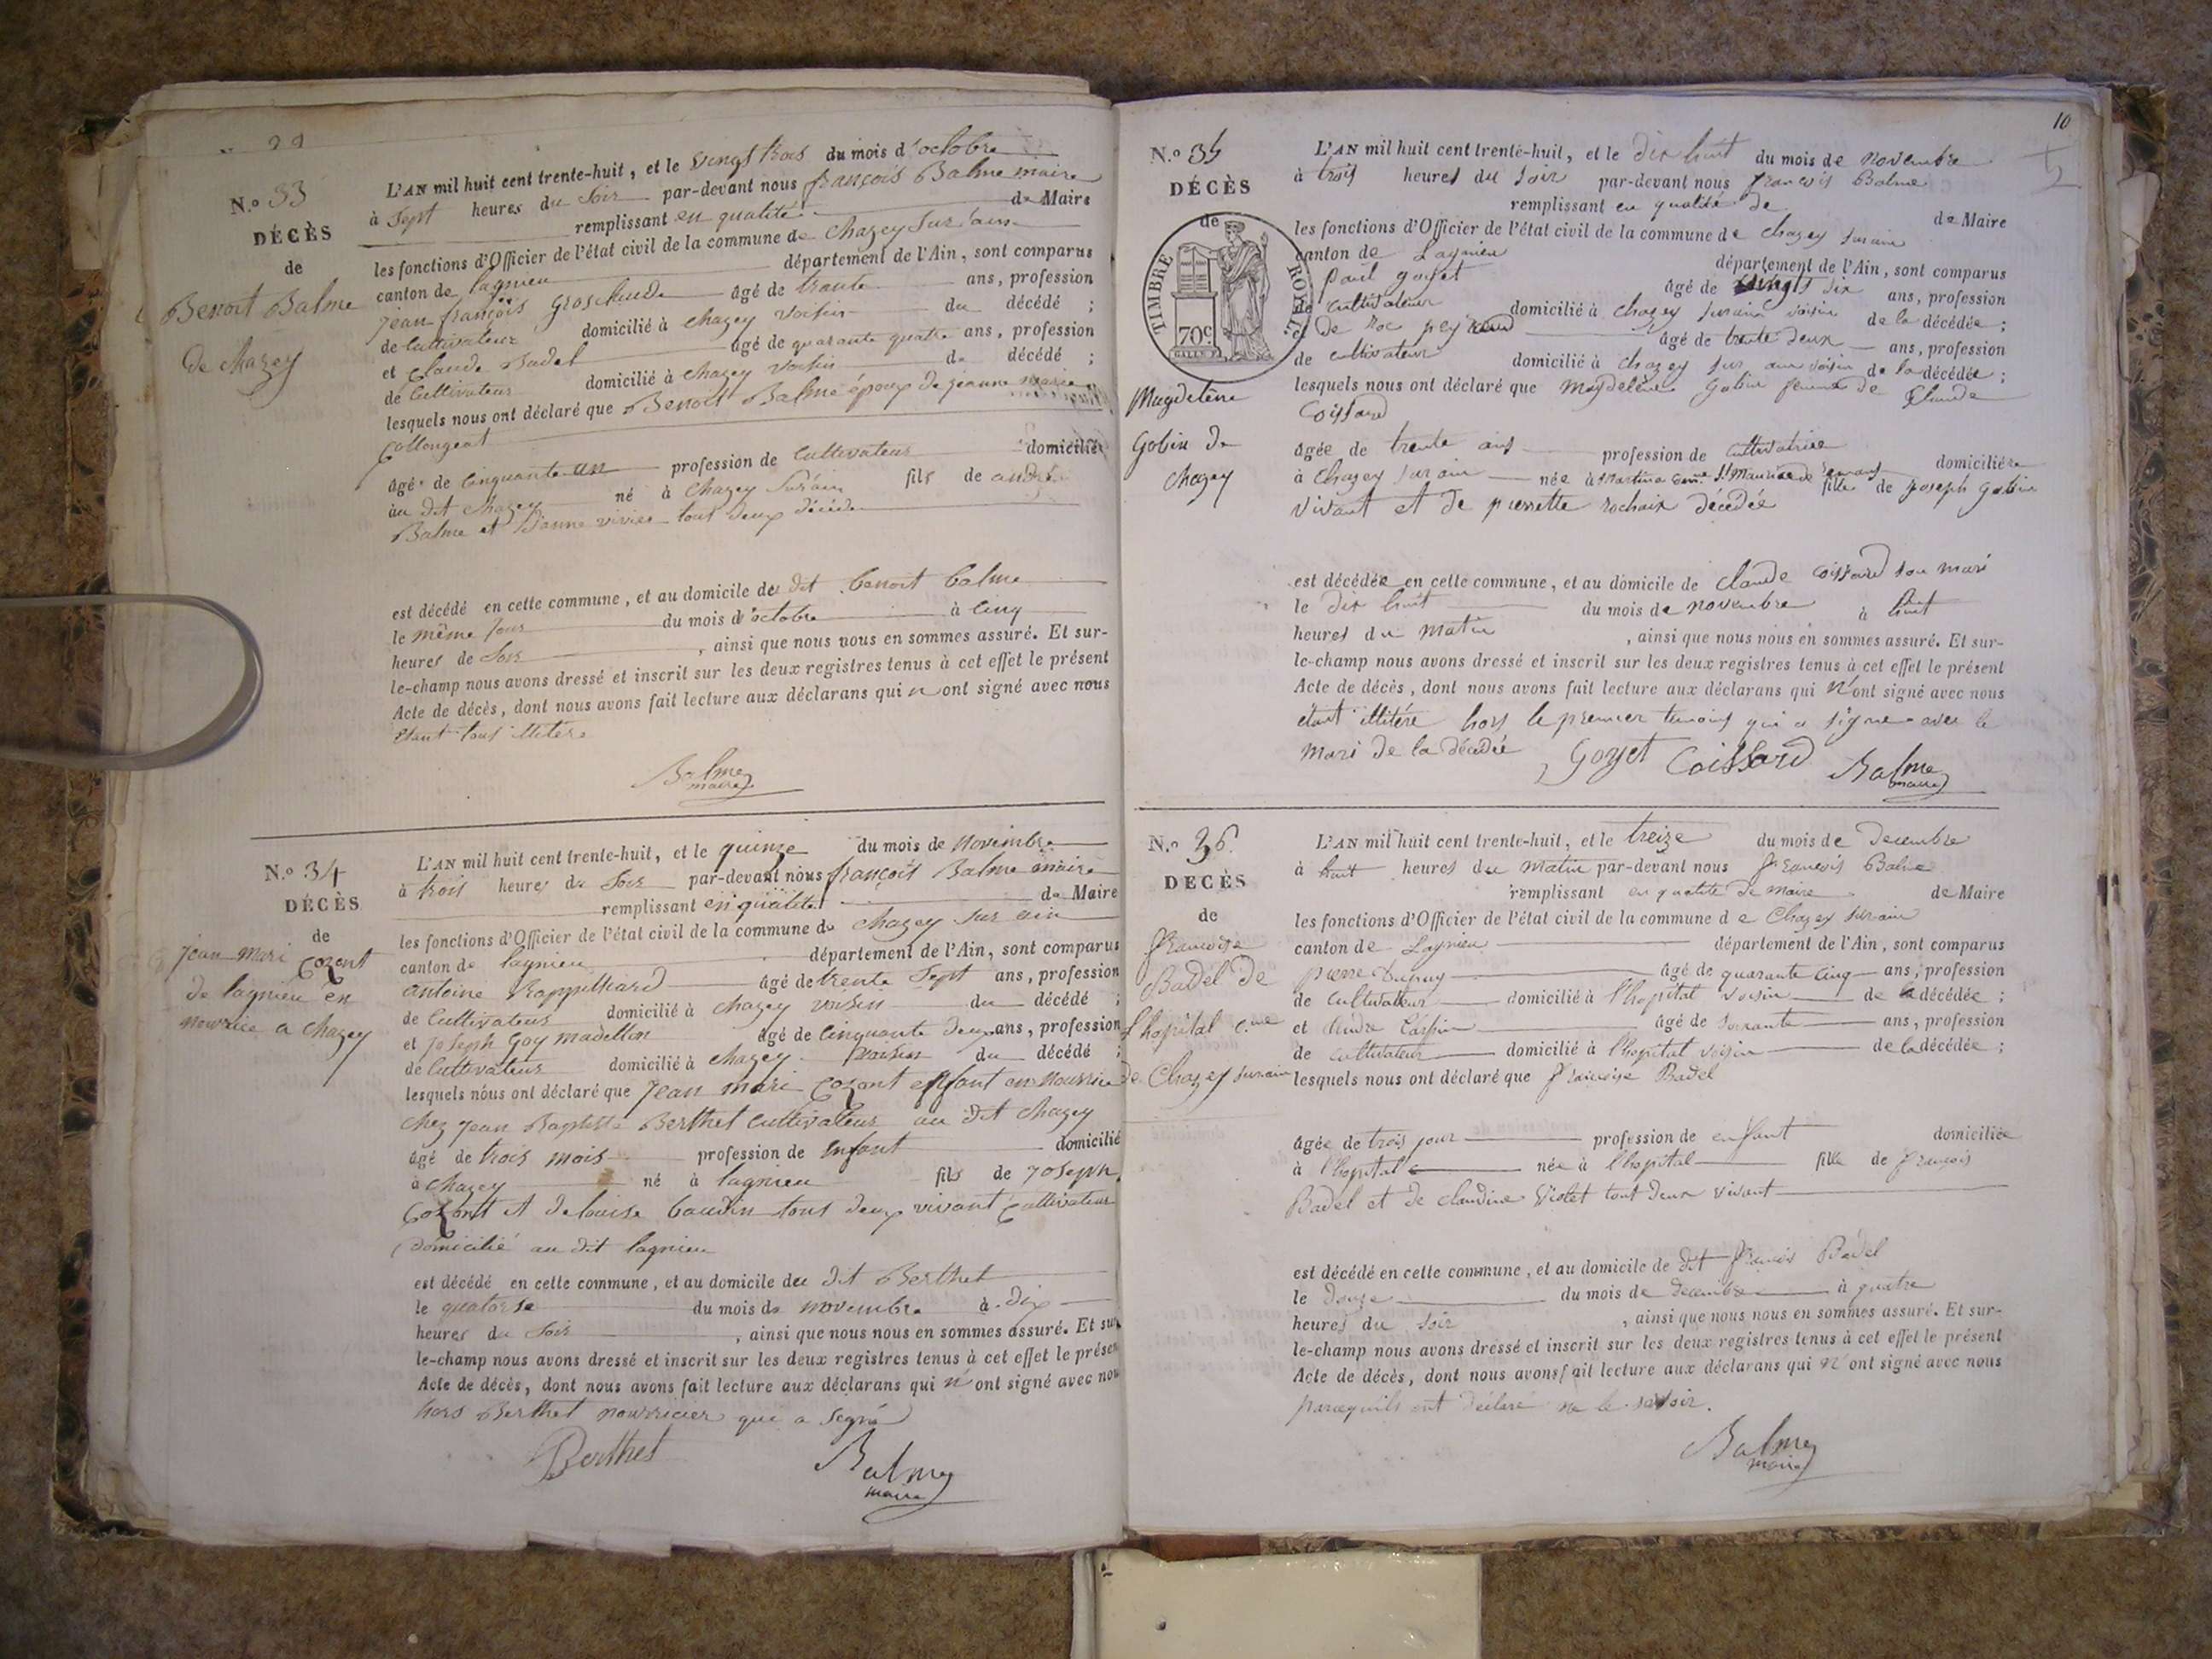 N.º 33
DÉCÈS
de
Benoit Balme
de chazey
L'AN mil huit cent trente-huit, et le vingt trois du mois d'octobre
à sept heures du soir par-devant nous françois Balme maire
remplissant en qualité de Maire
les fonctions d'Officier de l'état civil de la commune de chazey sur ain
canton de lagnieu département de l'Ain, sont comparus
jean françois âgé de trante ans, profession
de cultivateur domicilié à chazey voisin du décédé ;
et claude Badel âgé de quarante quatre ans, profession
de cultivateur domicilié à chazey voisin du décédé ;
lesquels nous ont déclaré que Benoit Balme époux de jeanne marie
Collongeat
âgé de cinquante un profession de cultivateur domicilié
au dit chazey né à chazey sur ain fils de andré
Balme et tous deux décédé
est décédé en cette commune, et au domicile du dit benoit balme
le même jour du mois d'octobre à cinq
heures de soir , ainsi que nous nous en sommes assuré. Et sur-
le-champ nous avons dressé et inscrit sur les deux registres tenus à cet effet le présent
Acte de décès, dont nous avons fait lecture aux déclarans qui n'ont signé avec nous
etant tous illitere
Balme
maire
N.º 34
DÉCÈS
de
jean mari cozont
de lagnieu en
nourrice a chazey
L'AN mil huit cent trente-huit, et le quinze du mois de novembre
à trois heures du soir par-devant nous françois Balme maire
remplissant en qualité de Maire
les fonctions d'Officier de l'état civil de la commune de chazey sur ain
canton de lagnieu département de l'Ain, sont comparus
antoine âgé de trente sept ans, profession
de cultivateur domicilié à chazey voisin du décédé ;
et joseph Goy madellon âgé de cinquante deux ans, profession
de cultivateur domicilié à chazey voisin du décédé ;
lesquels nous ont déclaré que jean mari cozont enfant en nourrice
chez jean Baptiste Berthet cultivateur au dit chazey
âgé de trois mois profession de enfant domicilié
à chazey né à lagnieu fils de joseph
cozont et de louise baudin tous deux vivant cultivateur
domicilié au dit lagnieu
est décédé en cette commune, et au domicile du dit Berthet
le quatorse du mois de novembre à dix
heures du soir , ainsi que nous nous en sommes assuré. Et sur
le-champ nous avons dressé et inscrit sur les deux registres tenus à cet effet le présen
Acte de décès, dont nous avons fait lecture aux déclarans qui n'ont signé avec nou
hors Berthet nourricier que a signé
Berthet Balme
maire
10
N.º 35
DÉCÈS
de
TIMBRE ROYAL.
70c
Magdeleine
Gobin de
chazey
L'AN mil huit cent trente-huit, et le dix huit du mois de novembre
à trois heures du soir par-devant nous françois Balme
remplissant en qualité de de Maire
les fonctions d'Officier de l'état civil de la commune de chazey sur ain
canton de Lagnieu département de l'Ain, sont comparus
paul goyet âgé de dix ans, profession
de cultivateur domicilié à chazey sur ain voisin de la décédée ;
âgé de trente deux ans, profession
de cultivateur domicilié à chazey sur ain voisin de la décédée ;
lesquels nous ont déclaré que Magdeleine Gobin femme de Claude
Coissard
âgée de trente ans profession de cultivatrice domiciliée
à chazey sur ain née à St Maurice de fille de joseph Gobin
vivant et de pierrette rochaix décédée
est décédée en cette commune, et au domicile de claude coissard son mari
le dix huit du mois de novembre à huit
heures du matin , ainsi que nous nous en sommes assuré. Et sur-
le-champ nous avons dressé et inscrit sur les deux registres tenus à cet effet le présent
Acte de décès, dont nous avons fait lecture aux déclarans qui n'ont signé avec nous
étant illitére hors le premier temoins qui a signé avec le
mari de la décédée Goyet Coissard Balme
maire
N.º 36.
DÉCÈS
de
françoise
Badel de
l'hopital cne
de Chazey sur ain
L'AN mil huit cent trente-huit, et le treize du mois de decembre
à huit heures du matin par-devant nous françois Balme
remplissant en qualité de maire de Maire
les fonctions d'Officier de l'état civil de la commune de Chazey sur ain
canton de Lagnieu département de l'Ain, sont comparus
pierre Dupuy âgé de quarante cinq ans, profession
de cultivateur domicilié à l'hopital voisin de la décédée ;
et âgé de soixante ans, profession
de cultivateur domicilié à l'hopital voisin de la décédée ;
lesquels nous ont déclaré que françoise Badel
âgée de trois jour profession de enfant domiciliée
à l'hopital née à l'hopital fille de françois
Badel et de claudine Violet tout deux vivant
est décédée en cette commune, et au domicile de dit françois Badel
le douze du mois de decembre à quatre
heures du soir , ainsi que nous nous en sommes assuré. Et sur-
le-champ nous avons dressé et inscrit sur les deux registres tenus à cet effet le présent
Acte de décès, dont nous avons fait lecture aux déclarans qui n'ont signé avec nous
parcequils ont déclaré ne le savoir.
Balme
maire